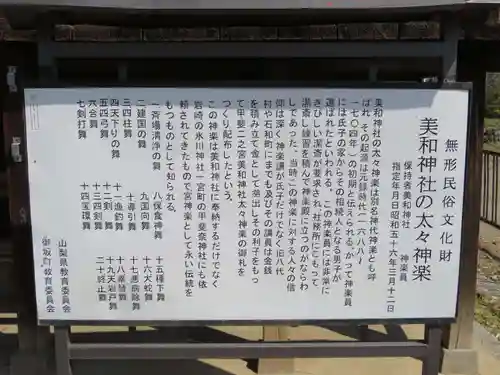 無形民俗文化財
美和神社の太々神楽
保持者美和神社 神楽員
指定年月日昭和五十六年三月十二日
美和神社の太々神楽は別名神代神楽とも呼
ばれ、その起源は元禄時代(一六八八〜
一七〇四年)の初期と伝えられる。かつて神楽員
には氏子の家からその相続人となる男子が
選ばれたといわれる。この神楽員には非常に
きびしい潔斎が要求され、社務所にこもって
潔斎し練習を積んで神楽殿に立つのがならわ
しであった。当時この神楽に対する人々の信
仰は深く神楽講が氏子だけでなく、旧石代
村や石和町にまでも及び、その講員は金銭
を積み立て金として差出しその利子をもっ
て甲斐二之宮美和神社太々神楽の御札を
つくり配布したという。
この神楽は美和神社に奉納するだけでなく
岩崎の氷川神社、一宮町の甲斐奈神社にも依
頼されてきたもので宮神楽として永い伝統を
もつものとして知られる。
一斎場清浄の舞 八保食神舞 十五種下舞
二建国の舞 九国向舞 十六大蛇舞
三四柱舞 十導引舞 十七悪病除舞
四天下りの舞 十一漁釣舞 十八薬種舞
五四弓舞 十二剣舞 十九天岩戸舞
六合舞 十三四剣舞 二十終止舞
七剣打舞 十四多環舞
山梨県教育委員会
御坂町教育委員会